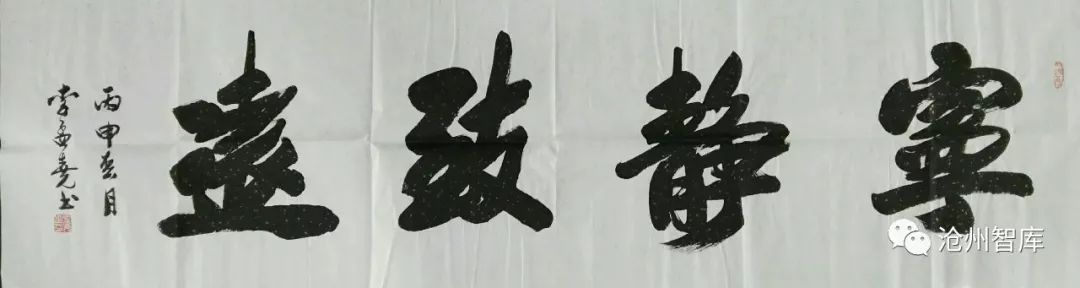 寧靜致遠
丙申春月
李孟堯书
沧州智库